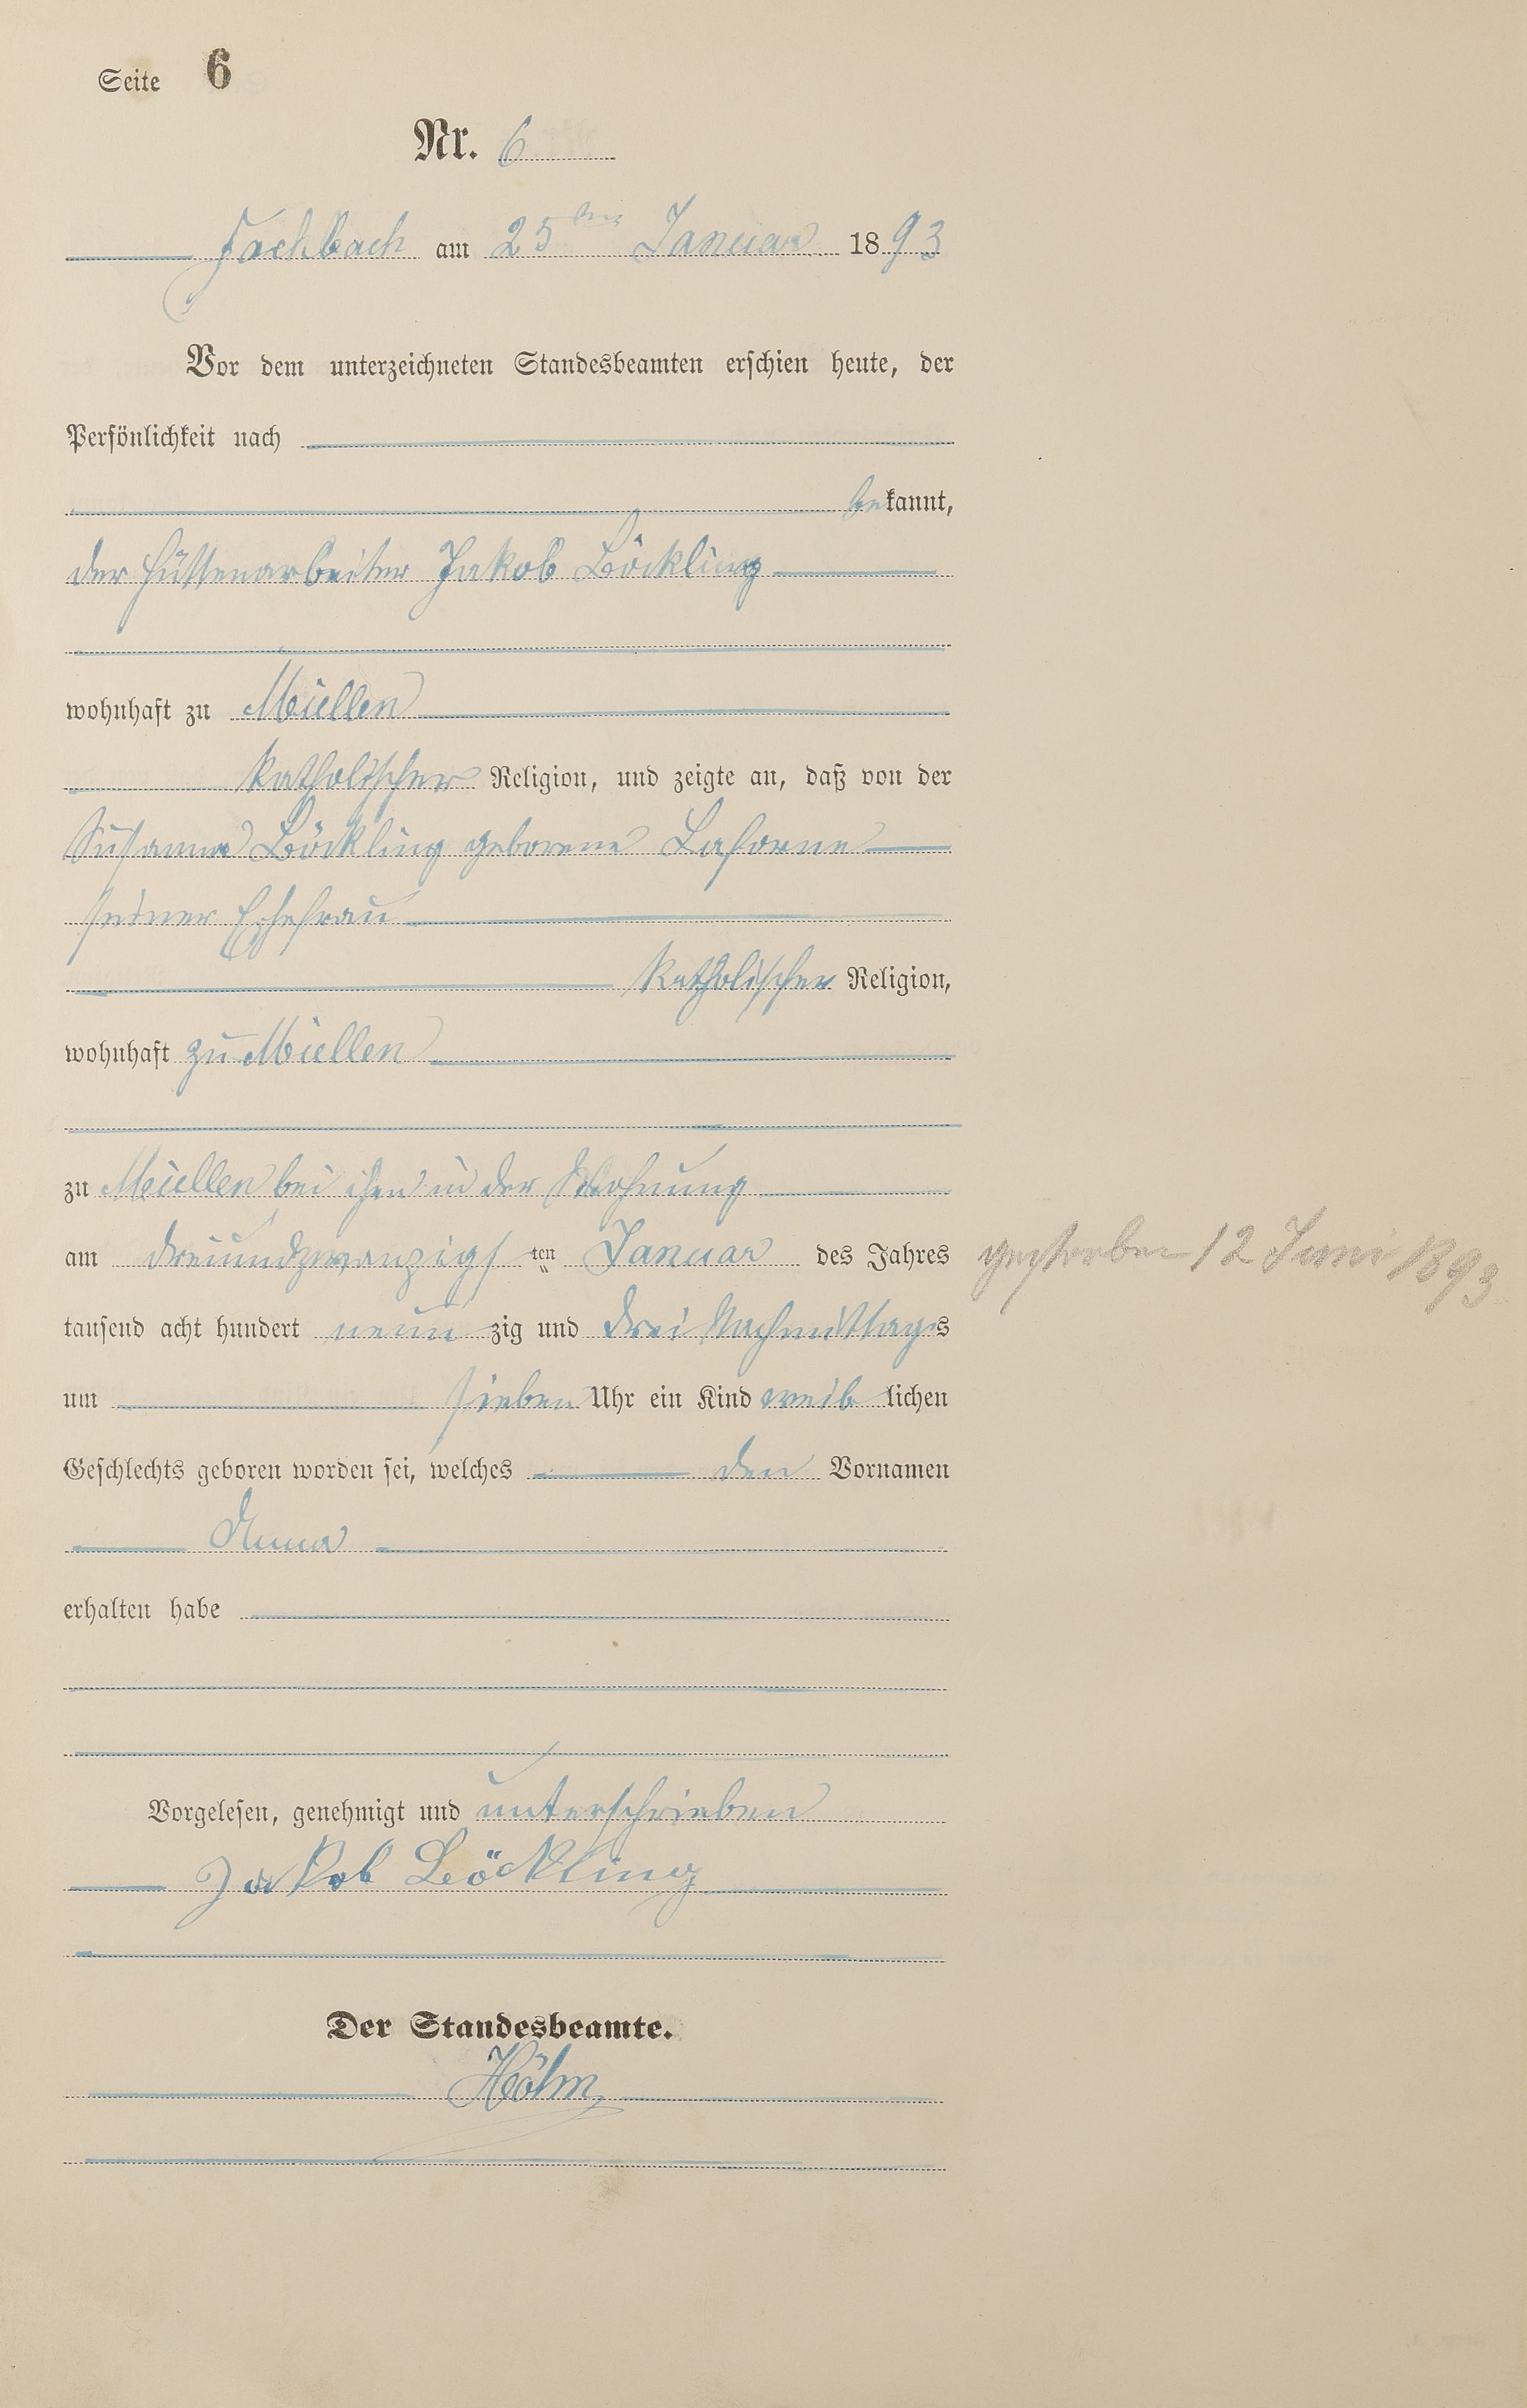 Seite 6
Nr. 6
Fachbach am 25ten Januar 1893
Vor dem unterzeichneten Standesbeamten erschien heute, der
Persönlichkeit nach
bekannt,
der Hüttenarbeiter Jakob Böckling
wohnhaft zu Miellen
katholischer Religion, und zeigte an, daß von der
Susanna Böckling geborene
seiner Ehefrau
katholischer Religion,
wohnhaft zu Miellen
zu Miellen bei ihm in der Wohnung
am dreiundzwanzigsten Januar des Jahres
gestorben 12 Juni 1893
tausend acht hundert neunzig und drei Nachmittags
um sieben Uhr ein Kind weiblichen
Geschlechts geboren worden sei, welches den Vornamen
Anna
erhalten habe
Vorgelesen, genehmigt und unterschrieben
Jakob Böckling
Der Standesbeamte.